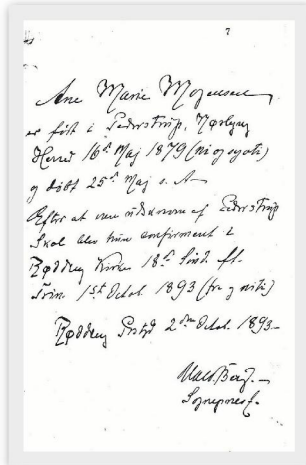 7
Ane Marie Mogensen
er født i Pederstrup, Nørlyng
Herred 16d Maj 1879 (ni og syvti)
og døbt 25d Maj s. A.
Efter at være udskreven af Pederstrup
Skole blev hun confirmeret i
Rødding Kirke 18d Sønd. eft.
Trin. 1st Octob. 1893 (tre og niti)
Rødding Prstgd 2den Octob. 1893.
Sognepræst.